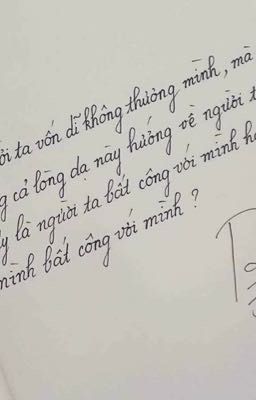 ta vốn dĩ không thương mình, mà
cả lòng dạ này hướng về người
là người ta bất công với mình
mình bất công với mình?